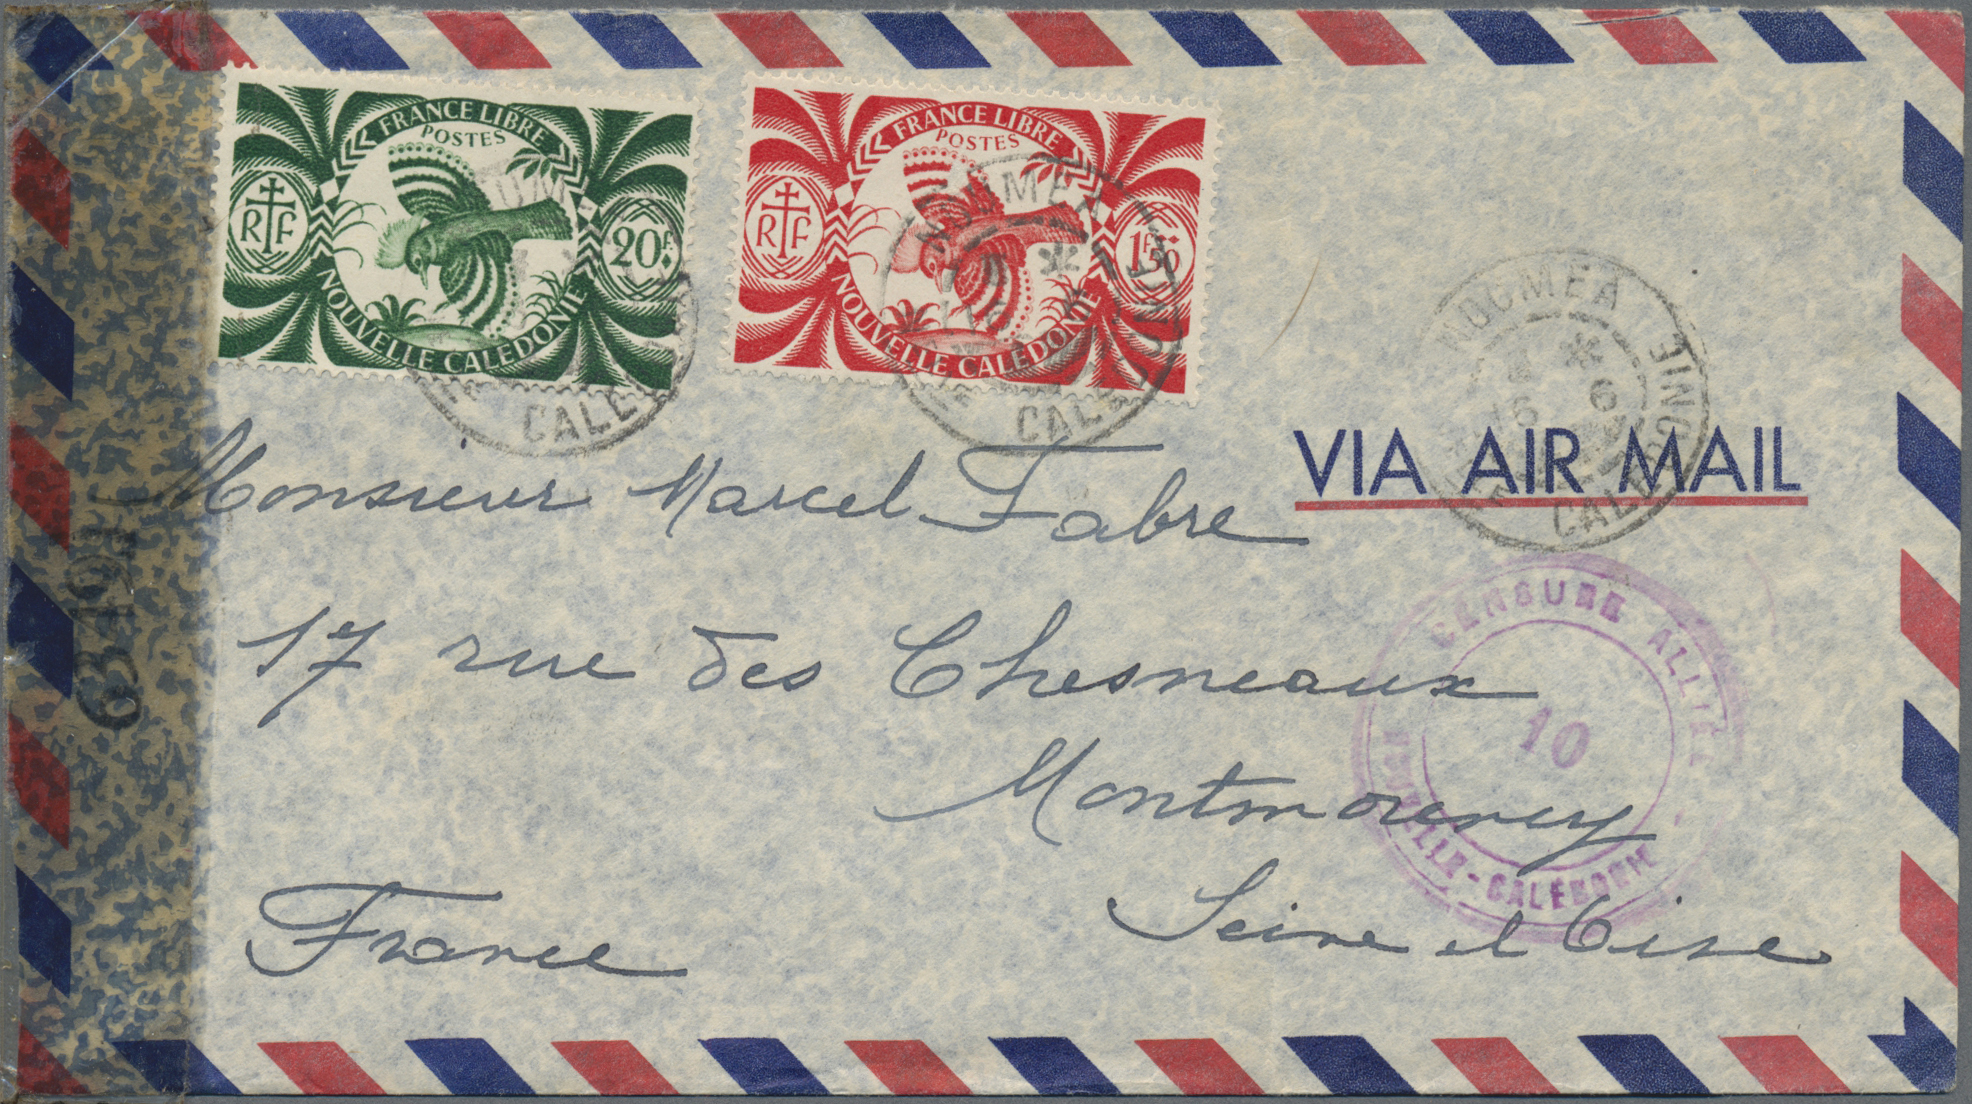 FRANCE LIBRE
POSTES
RF
20F.
NOUVELLE CALÉDONIE
FRANCE LIBRE
POSTES
RF
1F50
NOUVELLE CALÉDONIE
NOUMEA
CALE
NOUMEA
CALE
VIA AIR MAIL
Monsieur Marcel Fabre
17 rue des Chesneaux
Montmorency
Seine et Oise
France
CENSURE ALLIÉE
10
NOUVELLE-CALÉDONIE
6349